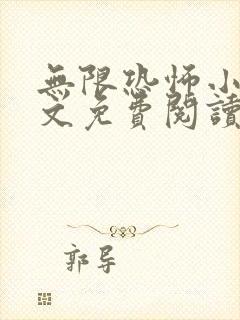 無限恐怖小
文免費閱讀
郭导